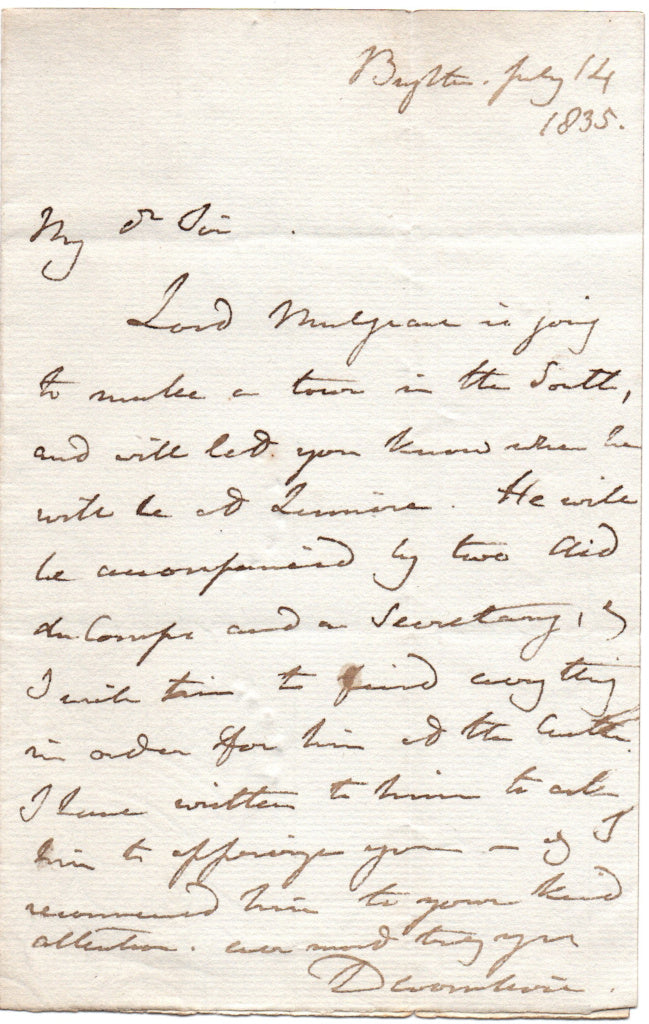 Brighton. July 14
1835.
My dr Sir
Lord Mulgrave is going
to make a tour in the South,
and will let you know when he
will be at Lismore. He will
be accompanied by two Aid
du Camps and a Secretary, &
I wish him to find every thing
in order for him at the Castle.
I have written to him to ask
him to you — & I
recommend him to your kind
attention. ever most truly yrs
Devonshire.